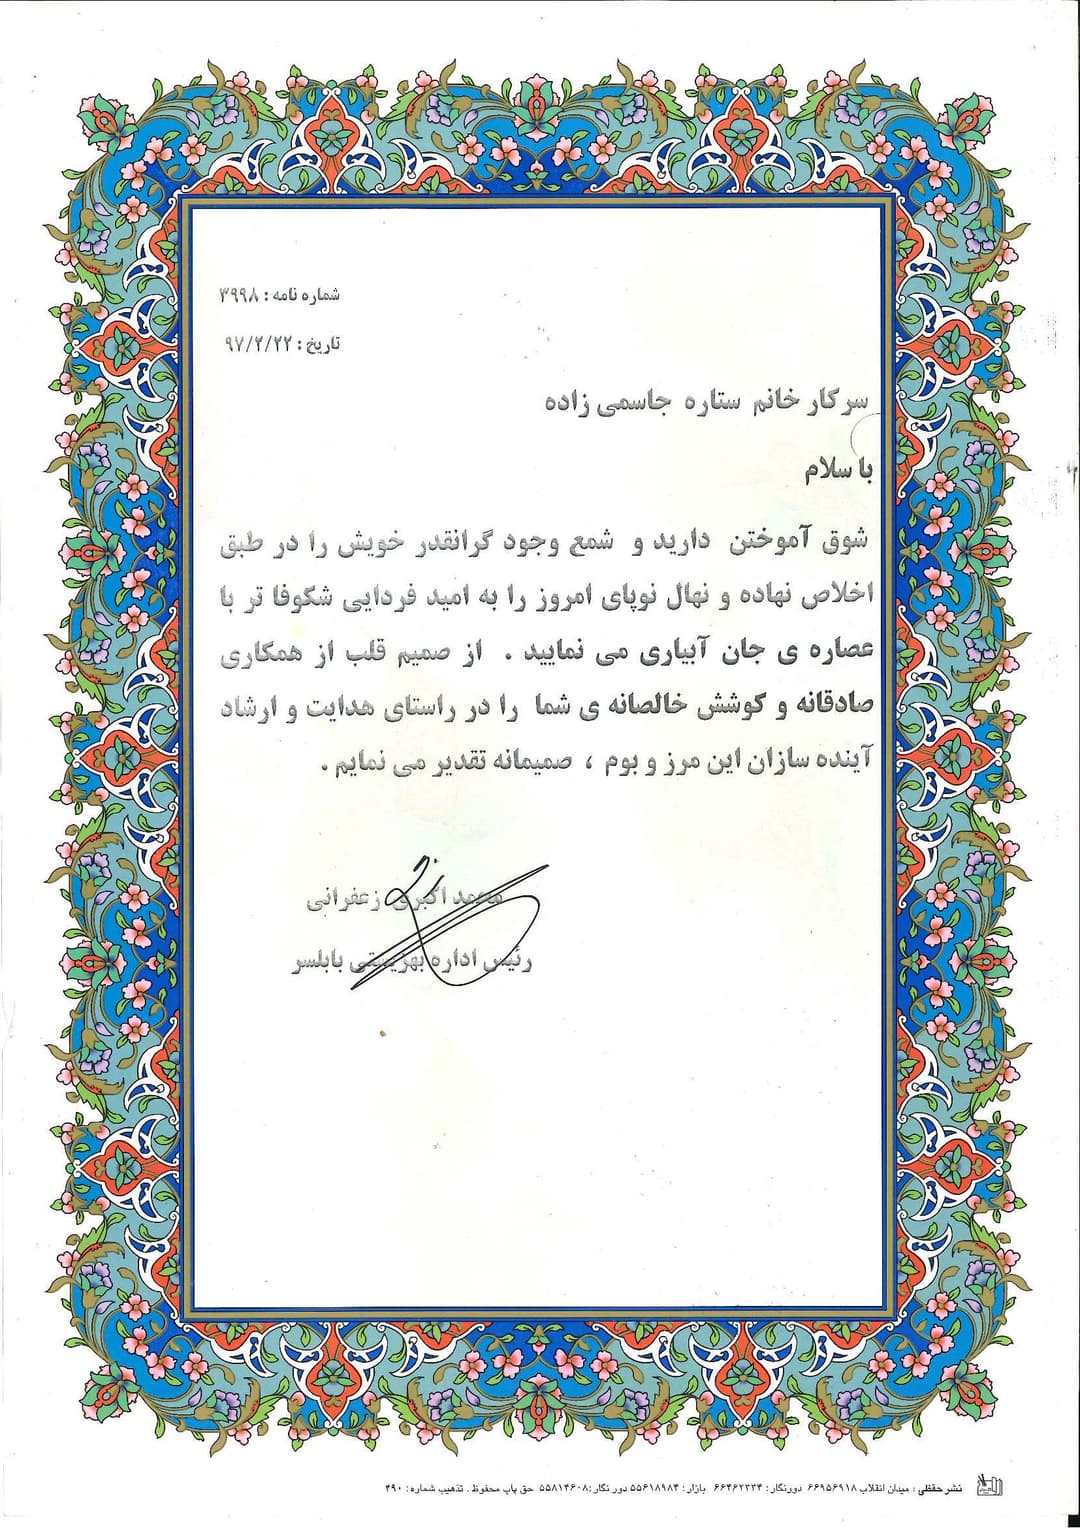 شماره نامه : ۳۹۹۸
تاریخ : ۹۷/۲/۲۲
سرکار خانم ستاره جاسمی زاده
با سلام
شوق آموختن دارید و شمع وجود گرانقدر خویش را در طبق
اخلاص نهاده و نهال نوپای امروز را به امید فردایی شکوفا تر با
عصاره ی جان آبیاری می نمایید . از صمیم قلب از همکاری
صادقانه و کوشش خالصانه ی شما را در راستای هدایت و ارشاد
آینده سازان این مرز و بوم ، صمیمانه تقدیر می نمایم .
محمد اکبری زعفرانی
رئیس اداره بهزیستی بابلسر
نشر حفظی : میدان انقلاب ۶۶۹۵۶۹۱۸ دورنگار : ۶۶۴۶۲۳۳۴ بازار : ۵۵۶۱۸۹۸۴ دور نگار : ۵۵۸۱۴۶۰۸ حق چاپ محفوظ . تذهیب شماره : ۴۹۰